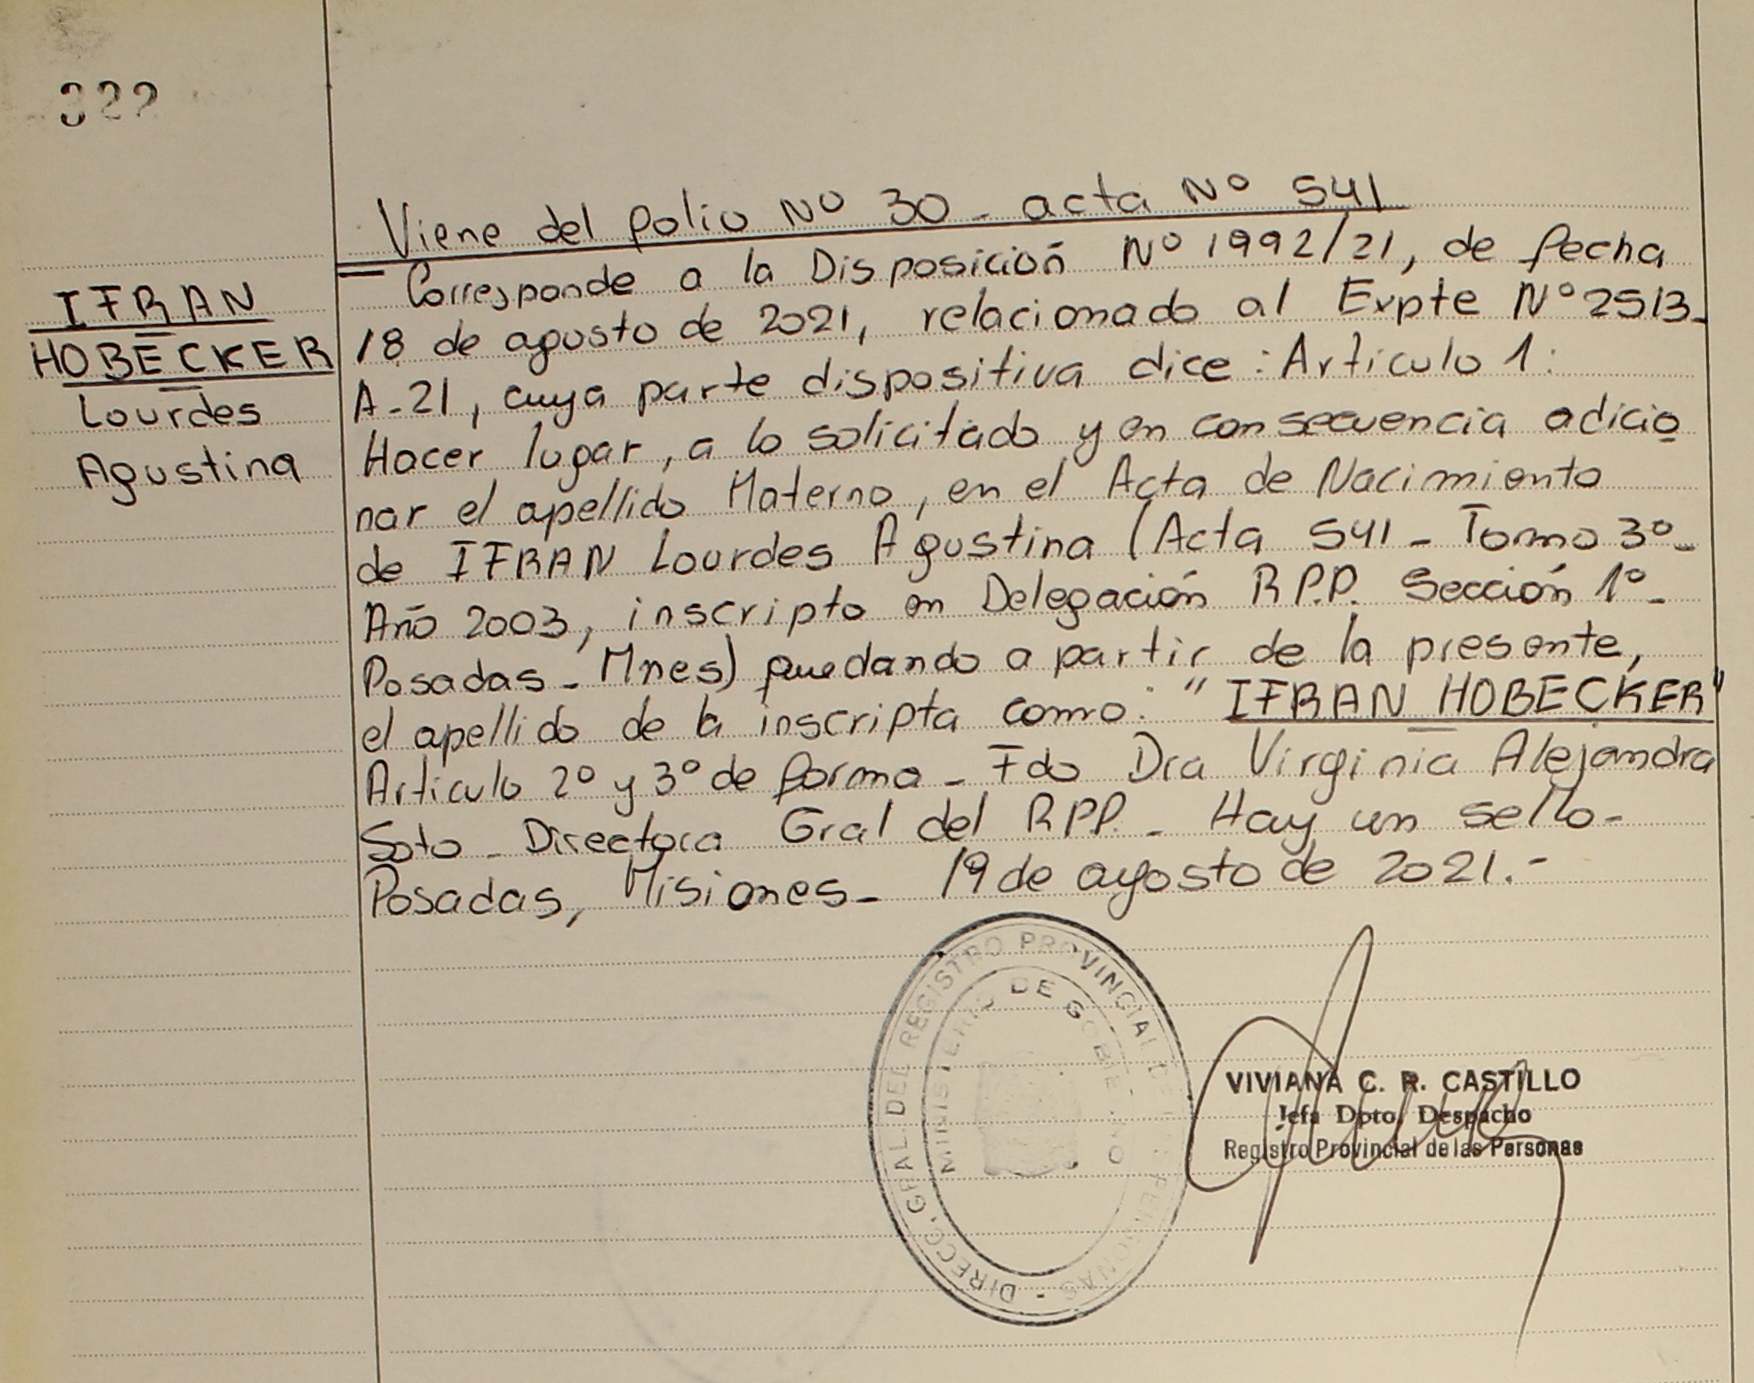 322
Viene del folio Nº 30 - acta Nº 541
IFRAN
HOBECKER
Lourdes
Agustina
Corresponde a la Disposición Nº 1992/21, de fecha
18 de agosto de 2021, relacionado al Expte Nº 2513-
A-21, cuya parte dispositiva dice: Artículo 1:
Hacer lugar, a lo solicitado y en consecuencia adicio
nar el apellido Materno, en el Acta de Nacimiento
de IFRAN Lourdes Agustina (Acta 541 - Tomo 3º -
Año 2003, inscripto en Delegación R.P.P. Sección 1º -
Posadas - Mnes) quedando a partir de la presente,
el apellido de la inscripta como: "IFRAN HOBECKER"
Artículo 2º y 3º de forma - Fdo Dra Virginia Alejandra
Soto - Directora Gral del RPP. - Hay un sello -
Posadas, Misiones - 19 de agosto de 2021.-
DIRECC. GRAL. DEL REGISTRO PROVINCIAL DE LAS PERSONAS -
MINISTERIO DE GOBIERNO
VIVIANA C. R. CASTILLO
Jefa Dpto. Despacho
Registro Provincial de las Personas